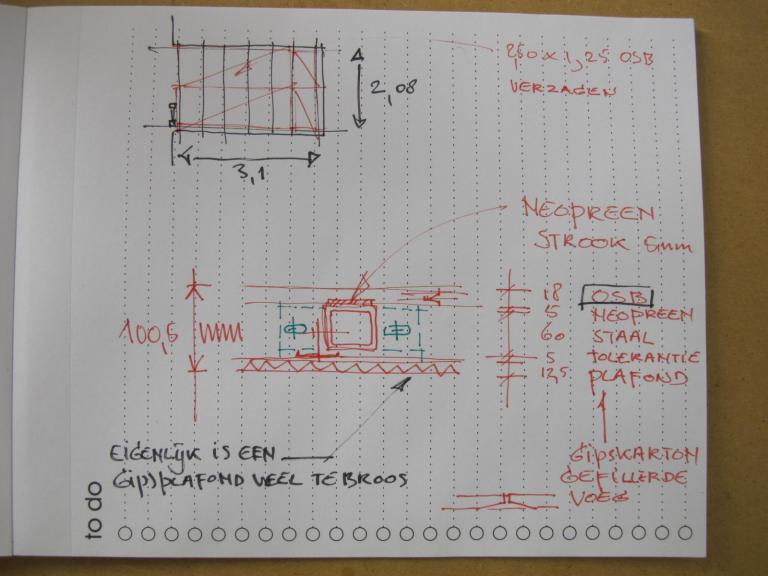 2,50 x 1,25 OSB
VERZAGEN
2,08
3,1
NEOPREEN
STROOK 5mm
100,5 mm
18 OSB
5 NEOPREEN
60 STAAL
5 TOLERANTIE
12,5 PLAFOND
EIGENLIJK IS EEN
GIPSPLAFOND VEEL TE BROOS
GIPSKARTON
GEFILLERDE
VOEG
to do